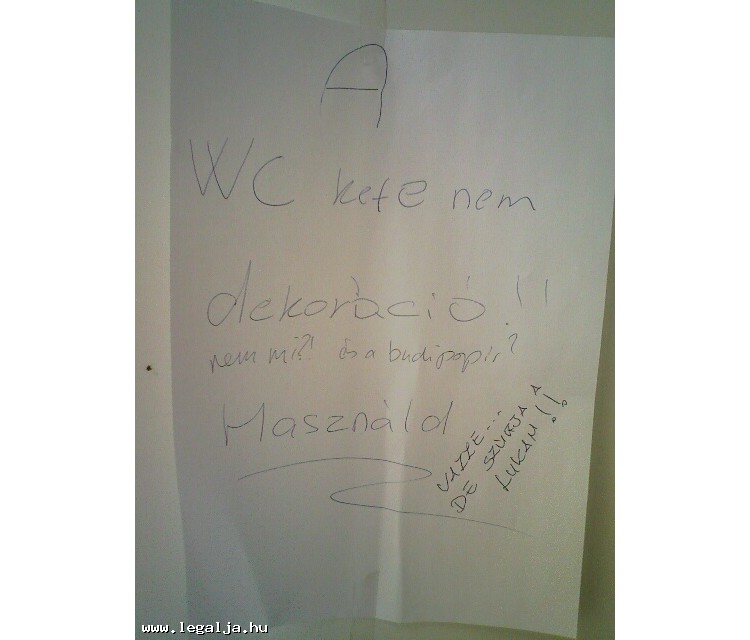 A
WC kefe nem
dekoráció!!
nem mi?! és a budipapir?
Használd
VAZZE...
DE SZÚRJA A
LUKAM!!
www.legalja.hu